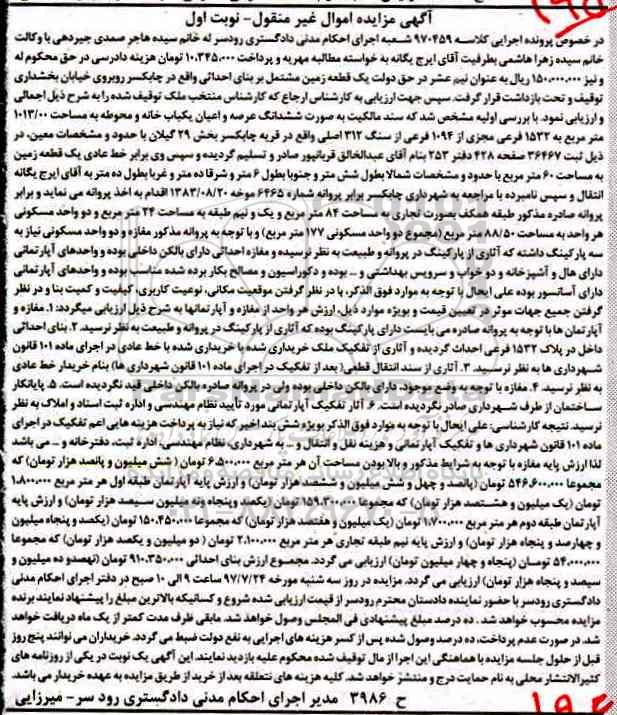 آگهی مزایده اموال غیر منقول- نوبت اول
در خصوص پرونده اجرایی کلاسه ۹۷۰۴۵۹ شعبه اجرای احکام مدنی دادگستری رودسر له خانم سیده هاجر صمدی جیردهی با وکالت
خانم سیده زهرا هاشمی بطرفیت آقای ایرج یگانه به خواسته مطالبه مهریه و پرداخت ۱۰،۳۴۵،۰۰۰ تومان هزینه دادرسی در حق محکوم له
و نیز ۱۵۰،۰۰۰،۰۰۰ ریال به عنوان نیم عشر در حق دولت یک قطعه زمین مشتمل بر بنای احداثی واقع در چابکسر روبروی خیابان بخشداری
توقیف و تحت بازداشت قرار گرفت. سپس جهت ارزیابی به کارشناس ارجاع که کارشناس منتخب ملک توقیف شده را به شرح ذیل اجمالی
و ارزیابی نمود. با بررسی اولیه مشخص شد که سند مالکیت به صورت ششدانگ عرصه و اعیان یکباب خانه و محوطه به مساحت ۱۰۱۳/۰۰
متر مربع به ۱۵۳۲ فرعی مجزی از ۱۰۹۴ فرعی از سنگ ۳۱۲ اصلی واقع در قریه چابکسر بخش ۲۹ گیلان با حدود و مشخصات معین، در
ذیل ثبت ۳۶۴۶۷ صفحه ۴۲۸ دفتر ۲۵۳ بنام آقای عبدالخالق قربانپور صادر و تسلیم گردیده و سپس وی برابر خط عادی یک قطعه زمین
به مساحت ۶۰ متر مربع با حدود و مشخصات شمالا بطول شش متر و جنوبا بطول ۶ متر و شرقا ده متر و غربا بطول ده متر به آقای ایرج یگانه
انتقال و سپس نامبرده با مراجعه به شهرداری چابکسر برابر پروانه شماره ۶۴۶۵ موخه ۱۳۸۳/۰۸/۲۰ اقدام به اخذ پروانه می نماید و برابر
پروانه صادره مذکور طبقه همکف بصورت تجاری به مساحت ۸۴ متر مربع و یک و نیم طبقه به مساحت ۲۴ متر مربع و دو واحد مسکونی
هر واحد به مساحت ۸۸/۵۰ متر مربع (مجموع دو واحد مسکونی ۱۷۷ متر مربع) و با توجه به پروانه مذکور مغازه و دو واحد مسکونی نیاز به
سه پارکینگ داشته که آثاری از پارکینگ در پروانه و طبیعت به نظر نرسیده و مغازه احداثی دارای بالکن داخلی بوده و واحدهای آپارتمانی
دارای هال و آشپزخانه و دو خواب و سرویس بهداشتی و ... بوده و دکوراسیون و مصالح بکار برده شده مناسب بوده و واحدهای آپارتمانی
دارای آسانسور بوده علی ایحال با توجه به موارد فوق الذکر، با در نظر گرفتن موقعیت مکانی، نوعیت کاربری، کیفیت و کمیت بنا و در نظر
گرفتن جمیع جهات موثر در تعیین قیمت و بویژه موارد ذیل، ارزش هر واحد از مغازه و آپارتمانها به شرح ذیل ارزیابی میگردد: ۱. مغازه و
آپارتمان ها با توجه به پروانه صادره می بایست دارای پارکینگ بوده که آثاری از پارکینگ در پروانه و طبیعت به نظر نرسید. ۲. بنای احداثی
داخل در پلاک ۱۵۳۲ فرعی احداث گردیده و آثاری از تفکیک ملک خریداری شده یا خریداری شده با خط عادی در اجرای ماده ۱۰۱ قانون
شهرداری ها به نظر نرسید. ۳. آثاری از سند انتقال قطعی( بعد از تفکیک در اجرای ماده ۱۰۱ قانون شهرداری ها) بنام خریدار خط عادی
به نظر نرسید. ۴. مغازه با توجه به وضع موجود، دارای بالکن داخلی بوده ولی در پروانه صادره بالکن داخلی قید نگردیده است. ۵. پایانکار
ساختمان از طرف شهرداری صادر نگردیده است. ۶. آثار تفکیک آپارتمانی مورد تأیید نظام مهندسی و اداره ثبت اسناد و املاک به نظر
نرسید. نتیجه کارشناسی: علی ایحال با توجه به موارد فوق الذکر بویژه شش بند اخیر که نیاز به پرداخت هزینه هایی اعم تفکیک در اجرای
ماده ۱۰۱ قانون شهرداری ها و تفکیک آپارتمانی و هزینه نقل و انتقال و... به شهرداری، نظام مهندسی، اداره ثبت، دفترخانه و ... می باشد
لذا ارزش پایه مغازه با توجه به شرایط مذکور و بالا بودن مساحت آن هر متر مربع ۶،۵۰۰،۰۰۰ تومان ( شش میلیون و پانصد هزار تومان) که
مجموعا ۵۴۶،۶۰۰،۰۰۰ تومان (پانصد و چهل و شش میلیون و ششصد هزار تومان) و ارزش پایه آپارتمان طبقه اول هر متر مربع ۱،۸۰۰،۰۰۰
تومان (یک میلیون و هشتصد هزار تومان) که مجموعا ۱۵۹،۳۰۰،۰۰۰ تومان (یکصد وپنجاه ونه میلیون سیصد هزار تومان) و ارزش پایه
آپارتمان طبقه دوم هر متر مربع ۱،۷۰۰،۰۰۰ تومان (یک میلیون و هفتصد هزار تومان) که مجموعا ۱۵۰،۴۵۰،۰۰۰ تومان (یکصد و پنجاه میلیون
و چهارصد و پنجاه هزار تومان) و ارزش پایه نیم طبقه تجاری هر متر مربع ۲،۱۰۰،۰۰۰ تومان ( دو میلیون و یکصد هزار تومان) که مجموعا
۵۴،۰۰۰،۰۰۰ تومان (پنجاه و چهار میلیون تومان) ارزیابی می گردد. مجموع ارزش بنای احداثی ۹۱۰،۳۵۰،۰۰۰ تومان (نهصدو ده میلیون و
سیصد و پنجاه هزار تومان) ارزیابی می گردد. مزایده در روز سه شنبه مورخه ۹۷/۷/۲۴ ساعت ۹ الی ۱۰ صبح در دفتر اجرای احکام مدنی
دادگستری رودسر با حضور نماینده دادستان محترم رودسر از قیمت ارزیابی شده شروع و کسانیکه بالاترین مبلغ را پیشنهاد نمایند برنده
مزایده محسوب خواهد شد . ده درصد مبلغ پیشنهادی فی المجلس وصول خواهد شد. مابقی ظرف مدت کمتر از یک ماه دریافت خواهد
شد. در صورت عدم پرداخت، ده درصد وصول شده پس از کسر هزینه های اجرایی به نفع دولت ضبط می گردد. خریداران می توانند پنج روز
قبل از حلول جلسه مزایده با هماهنگی این اجرا از مال توقیف شده محکوم علیه بازدید نمایند. این آگهی یک نوبت در یکی از روزنامه های
کثیرالانتشار محلی به نام حمایت درج و منتشر خواهد شد. کلیه هزینه های متعلقه بعد از خرید از طریق مزایده به عهده خریدار می باشد.
ح ۳۹۸۶ مدیر اجرای احکام مدنی دادگستری رود سر- میرزایی